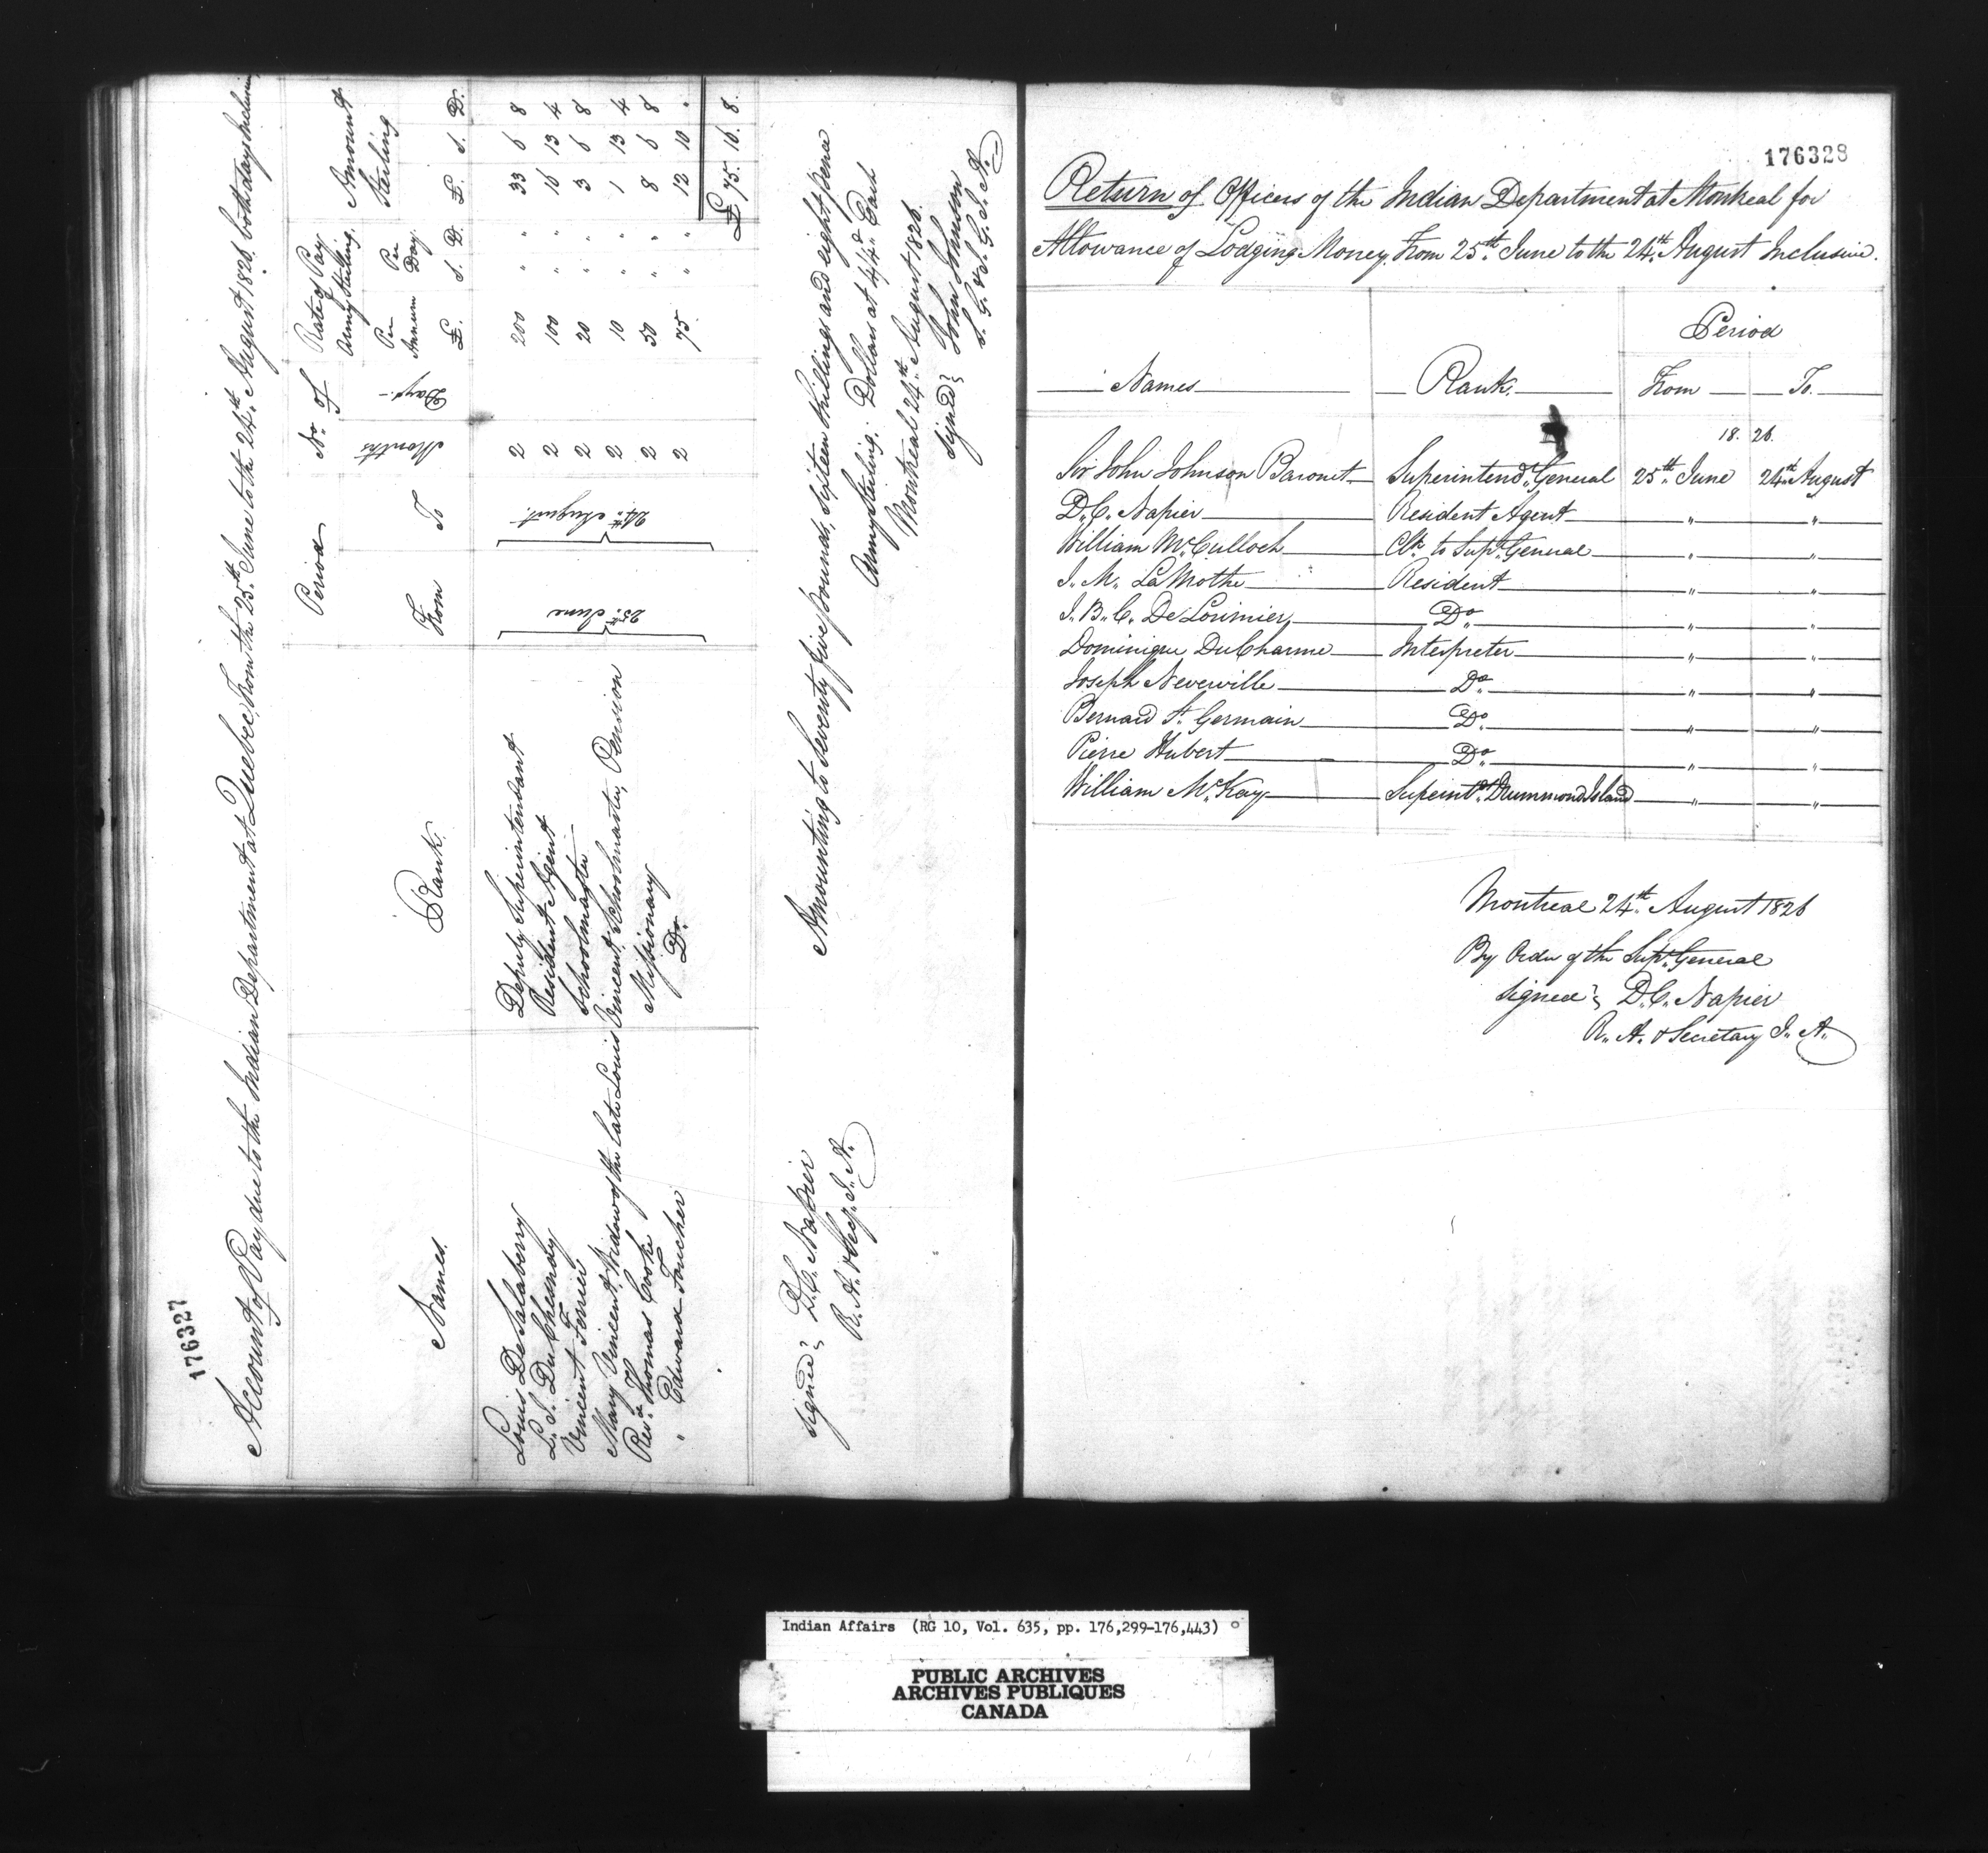 176327
Account of Pay due to the Indian Department at Quebec, from the 25th June to the 24th August 1826, both days inclusive
Names. Rank. Period No. of Rate of Pay Army Sterling. Amount Sterling
From To Months Days.- Per Annum Per Day.
£. S. D. £. S. D.
Louis De Salaberry Deputy Superintendant 25th June 24th August. 2 200 " " 33 6 8
L. J. DuChesnay Resident Agent 2 100 " " 16 13 4
Vincent Ferrier Schoolmaster 2 20 " " 3 6 8
Mary Vincent, Widow of the late Louis Vincent, Schoolmaster, Pension 2 10 " " 1 13 4
Revd. Thomas Cooke Missionary 2 50 " " 8 6 8
" Edward Faucher Do. 2 75. " " 12 10 "
£ 75. 16. 8.
Amounting to Seventy five pounds, sixteen Shillings and eight pence
Army Sterling. Dollars at 4/4d. Each
Montreal 24th August 1826.
Signed John Johnson
S. G. & I. G. I. A.
Signed D. C. Napier
R. A. & Secy. I. A.
176328
Return of Officers of the Indian Department at Montreal for
Allowance of Lodging Money, From 25th June to the 24th August Inclusive.
Names Rank. Period
From To.
18. 26.
Sir John Johnson Baronet Superintendt. General 25th June 24th August
D. C. Napier Resident Agent " "
William McCulloch Clk. to Supt. General " "
J. M. LaMothe Resident " "
J. B. C. DeLorimier, Do. " "
Dominique DuCharme Interpreter " "
Joseph Neverville Do. " "
Bernard St. Germain Do. " "
Pierre Hubert Do. " "
William McKay Superintt. Drummond Island " "
Montreal 24th August 1826
By Order of the Supt. General
Signed D. C. Napier
R. A. & Secretary I. A.
Indian Affairs (RG 10, Vol. 635, pp. 176,299-176,443)
PUBLIC ARCHIVES
ARCHIVES PUBLIQUES
CANADA